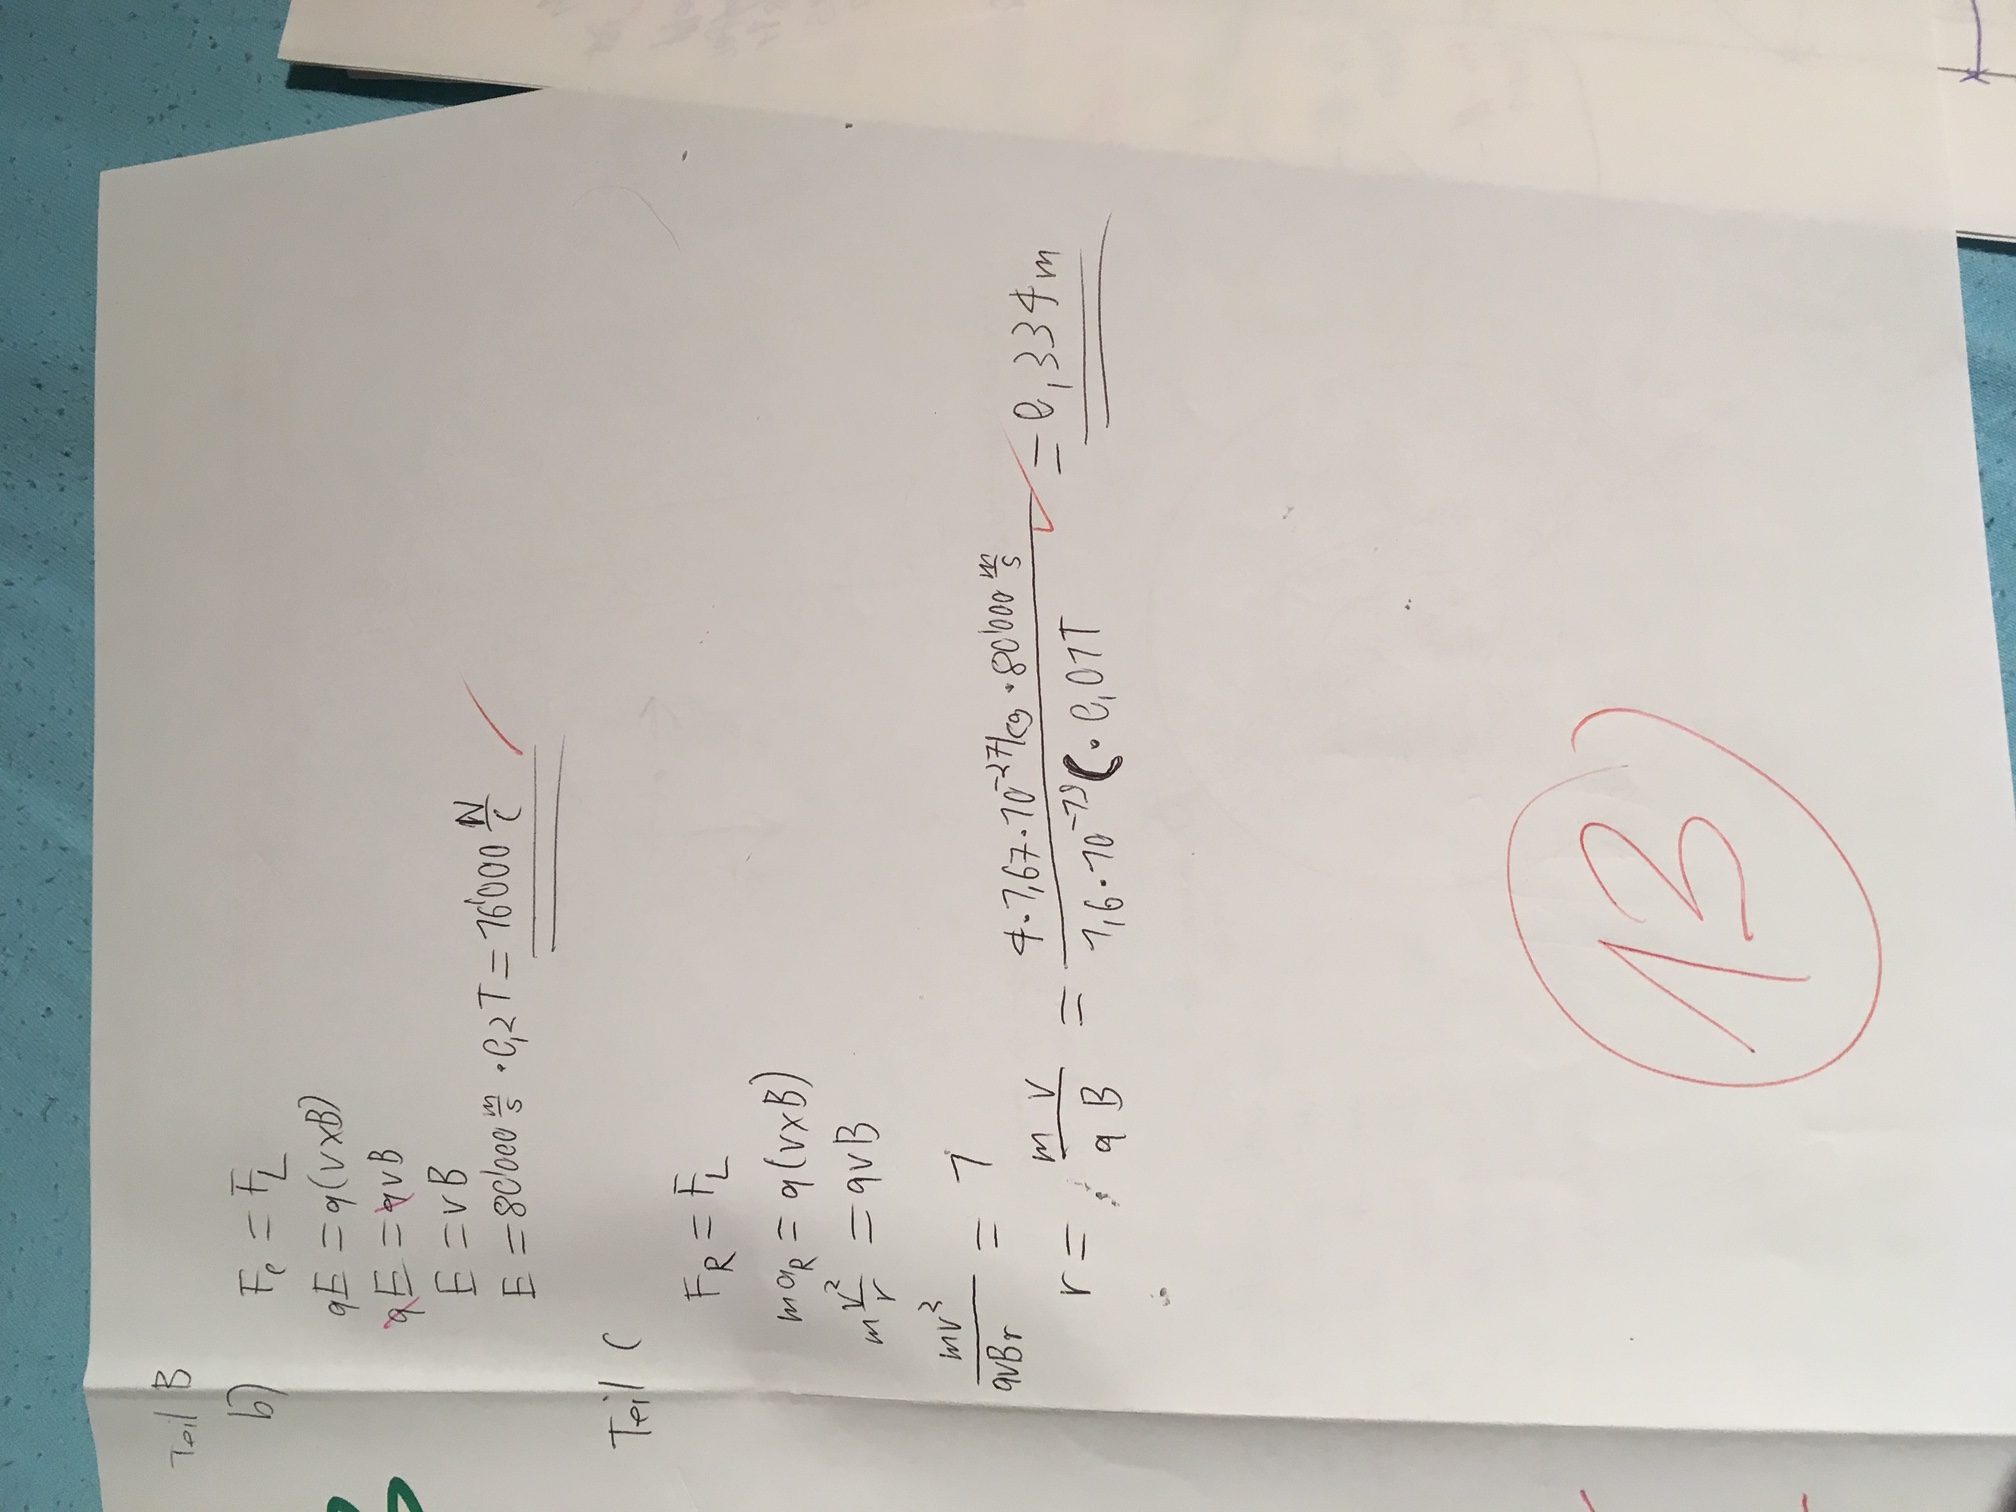 Teil B
b) Fe = FL
qE = q(v×B)
qE = qvB
E = vB
E = 80'000 m/s · 0,2T = 16'000 N/C
Teil C
FR = FL
maR = q(v×B)
m v²/r = qvB
mv²/qvBr = 1
r = m v/q B = 4·1,67·10⁻²⁷kg·80'000 m/s / 1,6·10⁻¹⁹C·0,01T = 0,334m
13